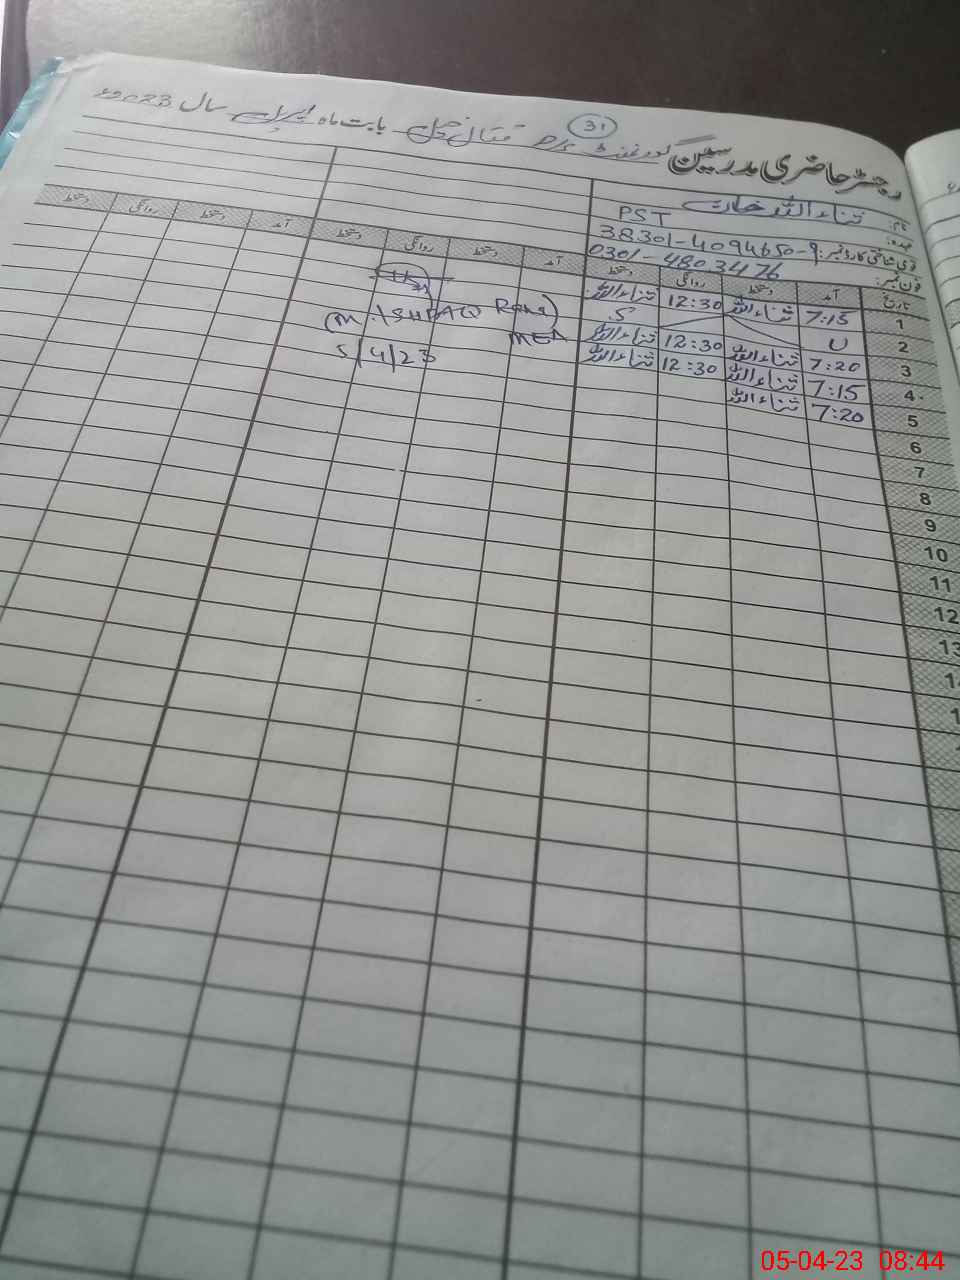 31
رجسٹر حاضری مدرسین گورنمنٹ بابت ماہ اپریل سال 2023ء
نام: ثناء اللہ خان
عہدہ: PST
قومی شناختی کارڈ نمبر: 38301-4094650-9
فون نمبر: 0301-4803476
تاریخ آمد دستخط روانگی دستخط آمد دستخط روانگی دستخط آمد دستخط روانگی دستخط
1 7:15 ثناء اللہ 12:30 ثناء اللہ
2 U S
3 7:20 ثناء اللہ 12:30 ثناء اللہ
4 7:15 ثناء اللہ 12:30 ثناء اللہ
5 7:20 ثناء اللہ
(M. ISHFAQ Rana)
MEA
5/4/23
6
7
8
9
10
11
12
13
05-04-23 08:44